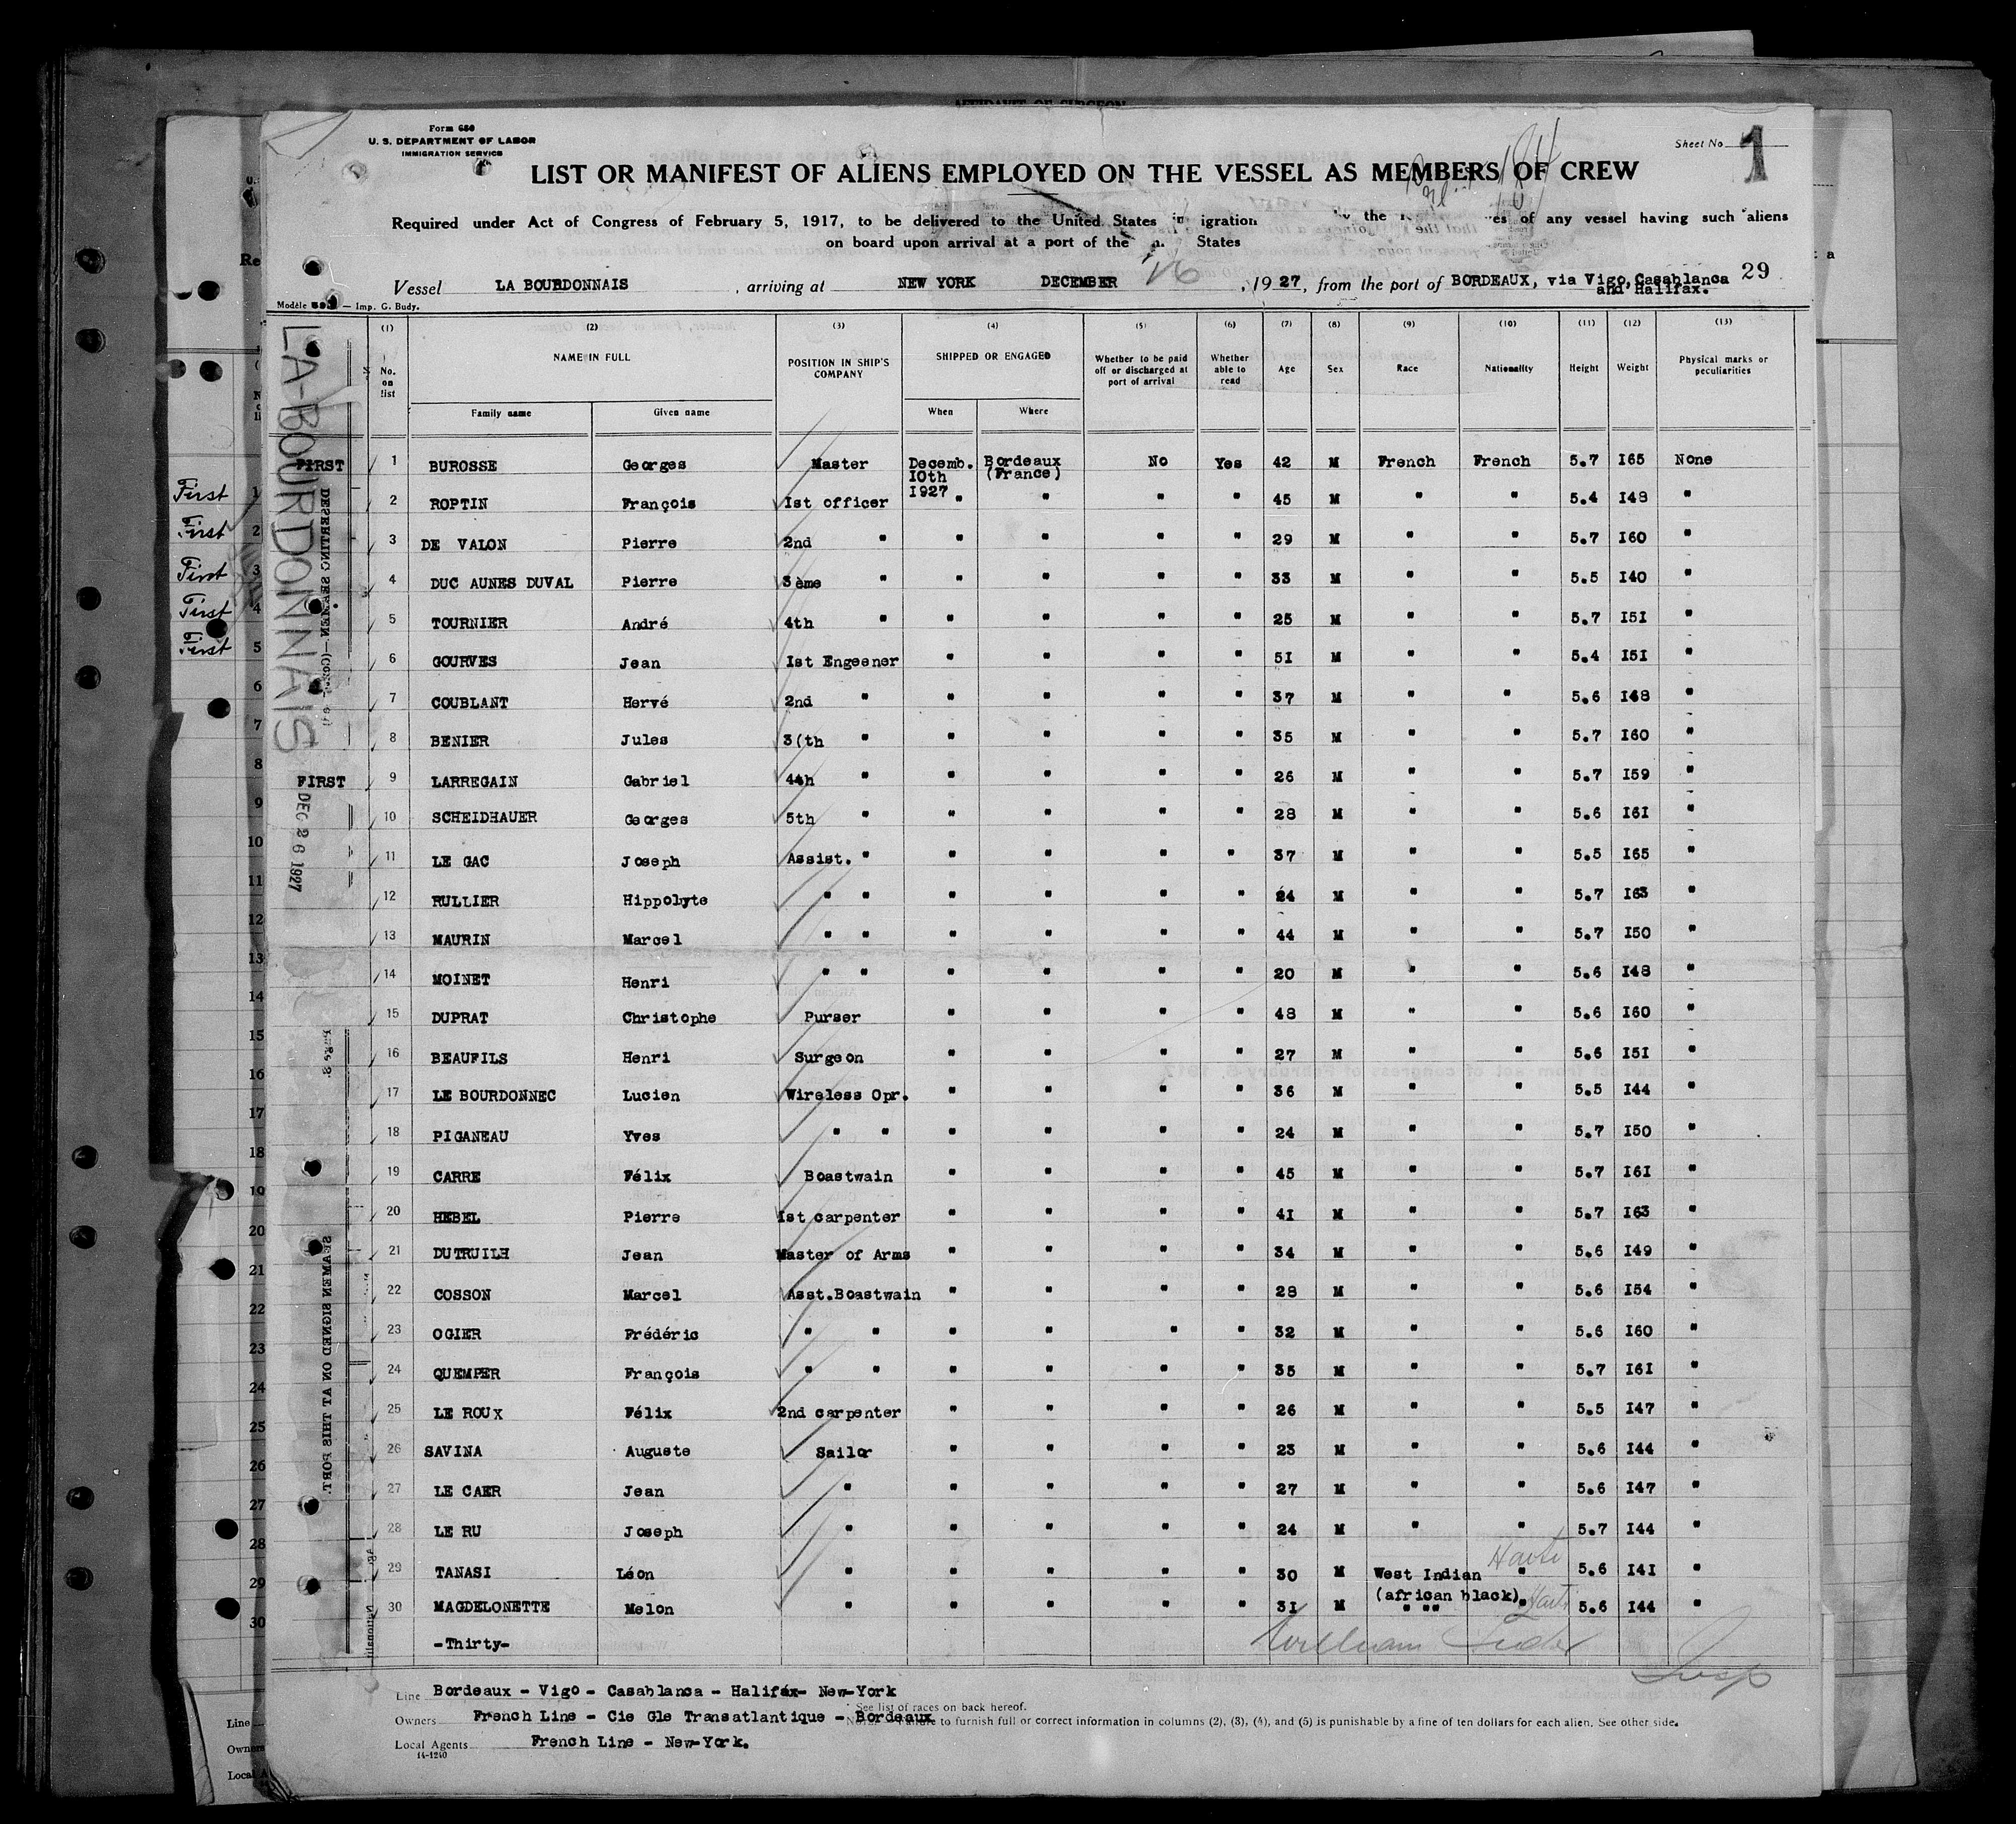 Form 680
U. S. DEPARTMENT OF LABOR
IMMIGRATION SERVICE
Sheet No. 1
LIST OR MANIFEST OF ALIENS EMPLOYED ON THE VESSEL AS MEMBERS OF CREW
Required under Act of Congress of February 5, 1917, to be delivered to the United States igration the es of any vessel having such aliens
on board upon arrival at a port of the States
Vessel LA BOURDONNAIS, arriving at NEW YORK DECEMBER 1927, from the port of BORDEAUX, via Vigo, Casablanca and Halifax. 29
Modèle — Imp. G. Budy.
(1) (2) (3) (4) (5) (6) (7) (8) (9) (10) (11) (12) (13)
No. on list NAME IN FULL POSITION IN SHIP'S COMPANY SHIPPED OR ENGAGED Whether to be paid off or discharged at port of arrival Whether able to read Age Sex Race Nationality Height Weight Physical marks or peculiarities
Family name Given name When Where
FIRST 1 BUROSSE Georges Master Decemb. 10th 1927 Bordeaux (France) No Yes 42 M French French 5.7 I65 None
2 ROPTIN François Ist officer " " " " 45 M " " 5.4 I48 "
3 DE VALON Pierre 2nd " " " " " 29 M " " 5.7 I60 "
4 DUC AUNES DUVAL Pierre 3ème " " " " " 33 M " " 5.5 I40 "
5 TOURNIER André 4th " " " " " 25 M " " 5.7 I5I "
6 GOURVES Jean Ist Engeener " " " " 5I M " " 5.4 I5I "
7 COUBLANT Hervé 2nd " " " " " 37 M " " 5.6 I48 "
8 BENIER Jules 3(th " " " " " 35 M " " 5.7 I60 "
FIRST 9 LARREGAIN Gabriel 44h " " " " " 26 M " " 5.7 I59 "
10 SCHEIDHAUER Georges 5th " " " " " 28 M " " 5.6 I6I "
11 LE GAC Joseph Assist. " " " " " 37 M " " 5.5 I65 "
12 RULLIER Hippolyte " " " " " " 24 M " " 5.7 I63 "
13 MAURIN Marcel " " " " " " 44 M " " 5.7 I50 "
14 MOINET Henri " " " " " " 20 M " " 5.6 I48 "
15 DUPRAT Christophe Purser " " " " 48 M " " 5.6 I60 "
16 BEAUFILS Henri Surgeon " " " " 27 M " " 5.6 I5I "
17 LE BOURDONNEC Lucien Wireless Opr. " " " " 36 M " " 5.5 I44 "
18 PIGANEAU Yves " " " " " " 24 M " " 5.7 I50 "
19 CARRE Félix Boastwain " " " " 45 M " " 5.7 I6I "
20 HEBEL Pierre Ist carpenter " " " " 4I M " " 5.7 I63 "
21 DUTRUILH Jean Master of Arms " " " " 34 M " " 5.6 I49 "
22 COSSON Marcel Asst.Boastwain " " " " 28 M " " 5.6 I54 "
23 OGIER Frédéric " " " " " " 32 M " " 5.6 I60 "
24 QUEMPER François " " " " " " 35 M " " 5.7 I6I "
25 LE ROUX Félix 2nd carpenter " " " " 26 M " " 5.5 I47 "
26 SAVINA Auguste Sailor " " " " 23 M " " 5.6 I44 "
27 LE CAER Jean " " " " " 27 M " " 5.6 I47 "
28 LE RU Joseph " " " " " 24 M " " 5.7 I44 "
29 TANASI Léon " " " " " 30 M West Indian (african black) " Haiti 5.6 I4I "
30 MAGDELONETTE Melon " " " " " 3I M " "" " Haiti 5.6 I44 "
-Thirty-
Insp
Line Bordeaux - Vigo - Casablanca - Halifax- New-York
See list of races on back hereof.
Owners French Line - Cie Gle Transatlantique - Bordeaux
to furnish full or correct information in columns (2), (3), (4), and (5) is punishable by a fine of ten dollars for each alien. See other side.
Local Agents French Line - New-York.
14-1240
LA-BOURDONNAIS
DEC 26 1927
DESERTING SEAMEN
SEAMEN SIGNED ON AT THIS PORT.
First
First
First
First
First
1
2
3
4
5
6
7
8
9
10
11
12
13
14
15
16
17
18
19
20
21
22
23
24
25
26
27
28
29
30
Line
Owners
Local A